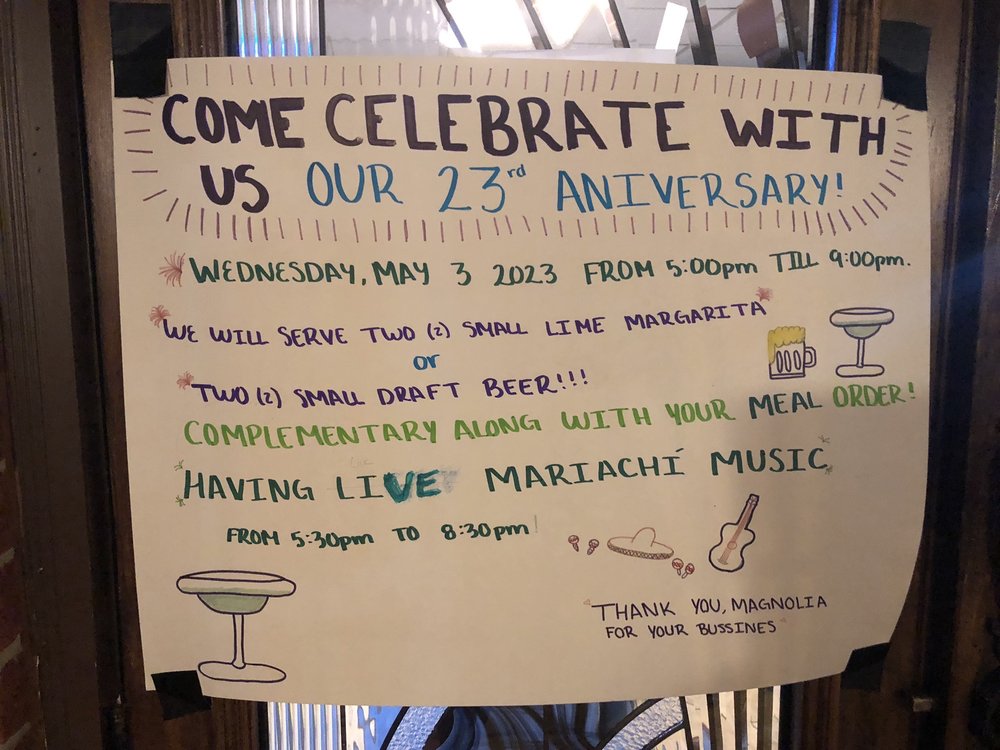 COME CELEBRATE WITH
US OUR 23rd ANIVERSARY!
WEDNESDAY, MAY 3 2023 FROM 5:00pm TILL 9:00pm.
WE WILL SERVE TWO (2) SMALL LIME MARGARITA
or
TWO (2) SMALL DRAFT BEER!!!
COMPLEMENTARY ALONG WITH YOUR MEAL ORDER!
HAVING LIVE MARIACHÍ MUSIC
FROM 5:30pm TO 8:30pm!
THANK YOU, MAGNOLIA
FOR YOUR BUSSINES